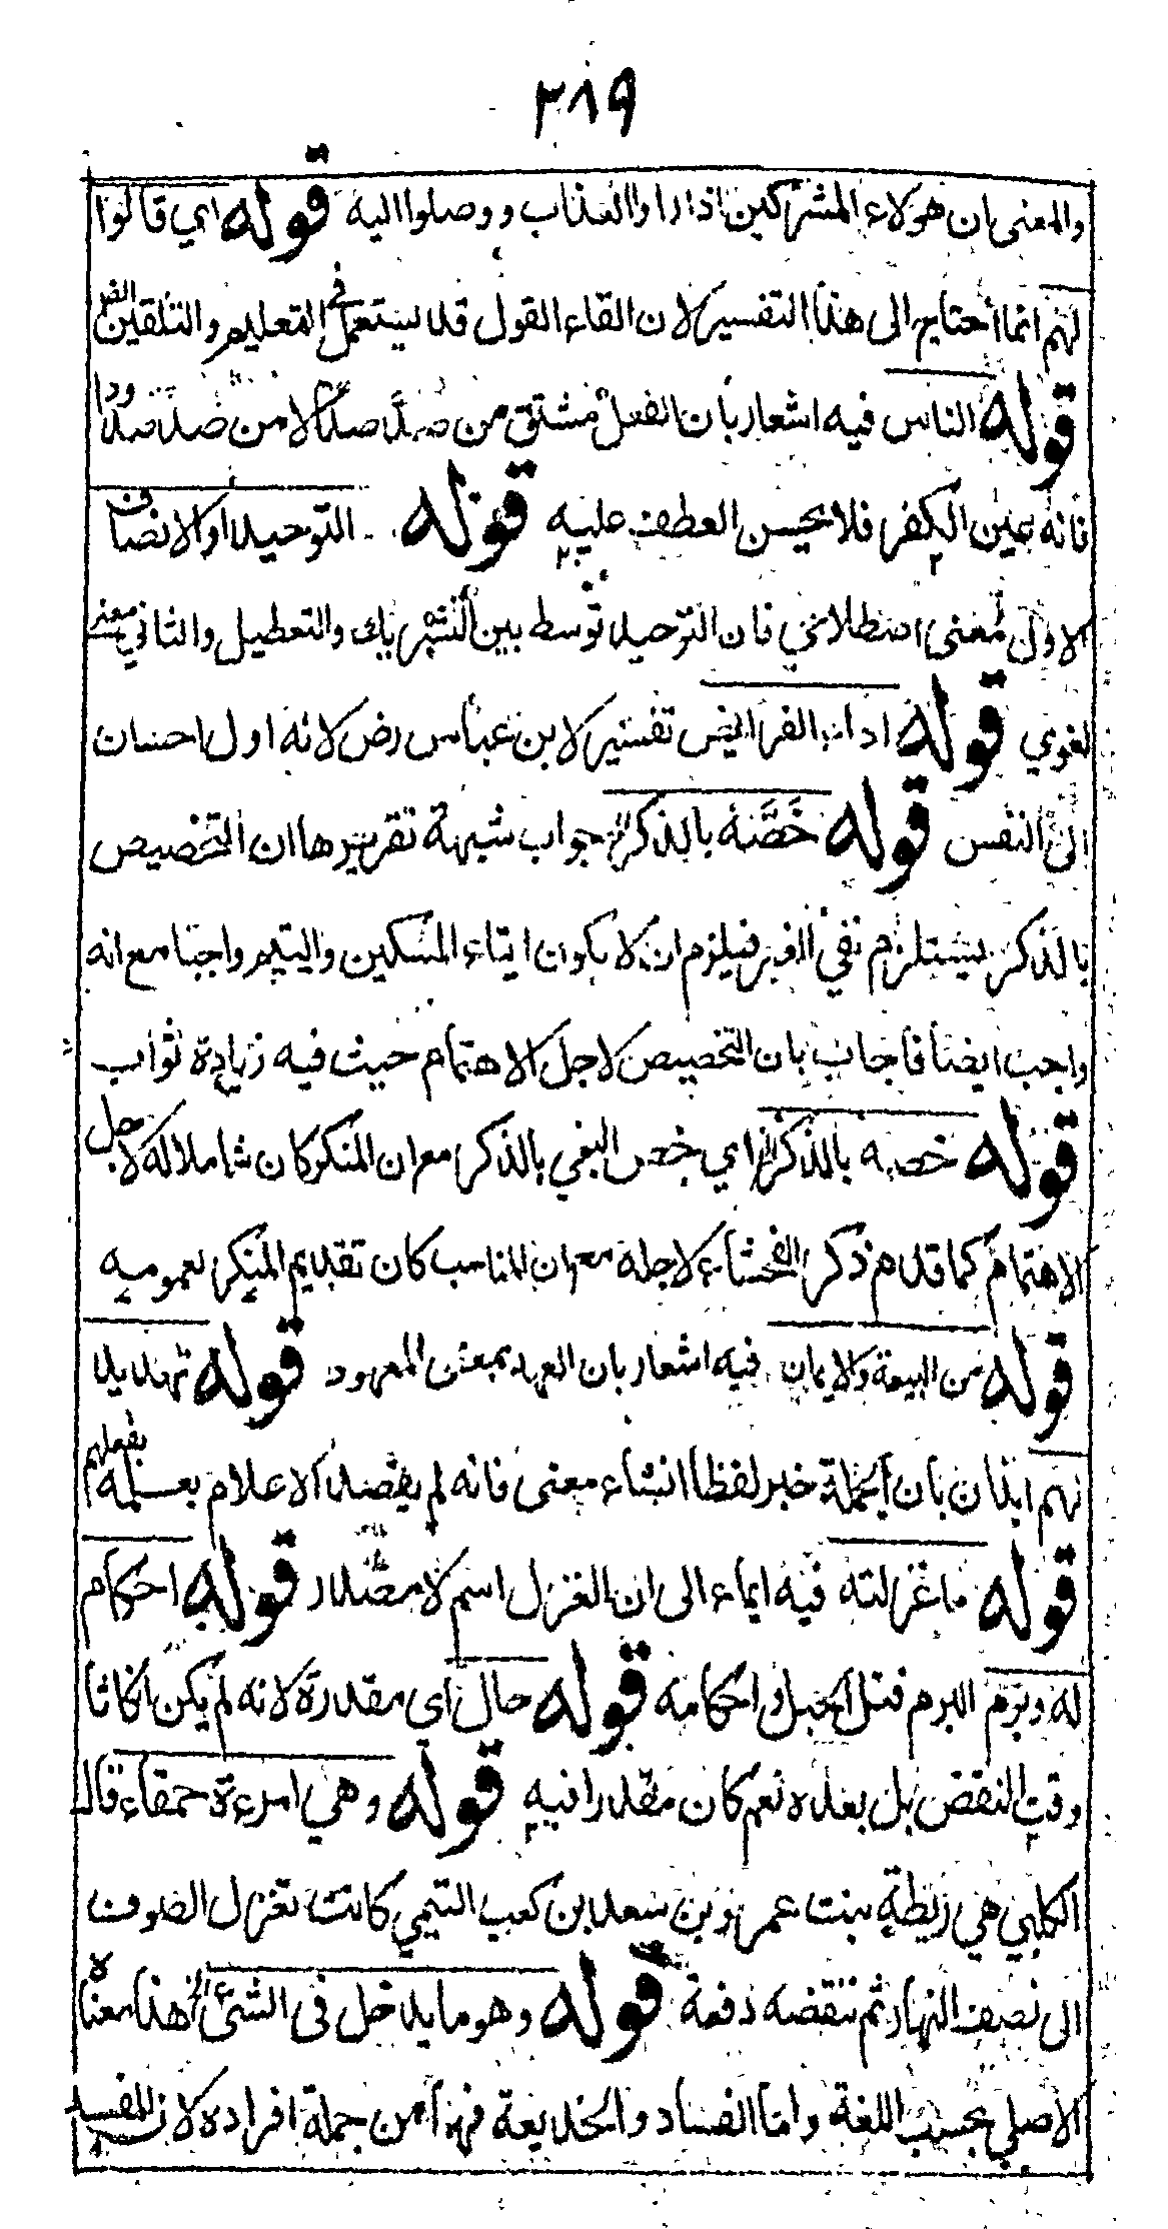 ٣٨٩
والمعنى ان هولاء المشركين اذا راوا العذاب ووصلوا اليه قوله اي قالوا
لهم انما احتاج الى هذا التفسير لان القاء القول قد يستعمل في التعليم والتلقين
قوله الناس فيه اشعار بان الفعل مشتق من صدّ صدّا لا من صدّ صدودا
فانه عين الكفر فلا يحسن العطف عليه قوله التوحيد او الانصاف
الاول معنى اصطلاحي فان التوحيد توسط بين التشريك والتعطيل والثاني معنى
لغوي قوله اداء الفرائض تفسير لابن عباس رض لانه اول احسان
الى النفس قوله خَصَّه بالذكر الخ جواب شبهة تقريرها ان التخصيص
بالذكر يستلزم نفي الغير فيلزم ان لا يكون ايتاء المسكين واليتيم واجبا مع انه
واجب ايضا فاجاب بان التخصيص لاجل الاهتمام حيث فيه زيادة ثواب
قوله خصه بالذكر الخ اي خص البغي بالذكر مع ان المنكر كان شاملا له لاجل
الاهتمام كما قدم ذكر الفحشاء لاجله مع ان المناسب كان تقديم المنكر لعموميه
قوله من البيعة والايمان فيه اشعار بان العهد بمعنى المعهود قوله تهديدا
لهم ايذان بان الجملة خبر لفظا انشاء معنى فانه لم يقصد الاعلام بعلمه بفعلهم
قوله ما غزلته فيه ايماء الى ان الغزل اسم لا مصدر قوله احكام
له وبرم البرم فتل الحبل واحكامه قوله حال اي مقدرة لانه لم يكن انكاثا
وقت النقض بل بعده نعم كان مقدرا فيه قوله وهي امرءة حمقاء قال
الكلبي هي ريطة بنت عمرو بن سعد بن كعب التيمي كانت تغزل الصوف
الى نصف النهار ثم تنقضه دفعة قوله وهو ما يدخل في الشئ الخ هذا معناه
الاصلي بحسب اللغة واما الفساد والخديعة فهو من جملة افراده لان المفسد